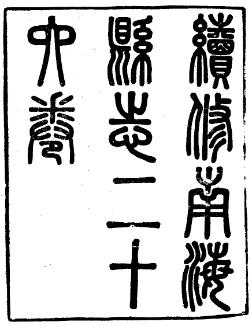 續修南海
縣志二十
六卷